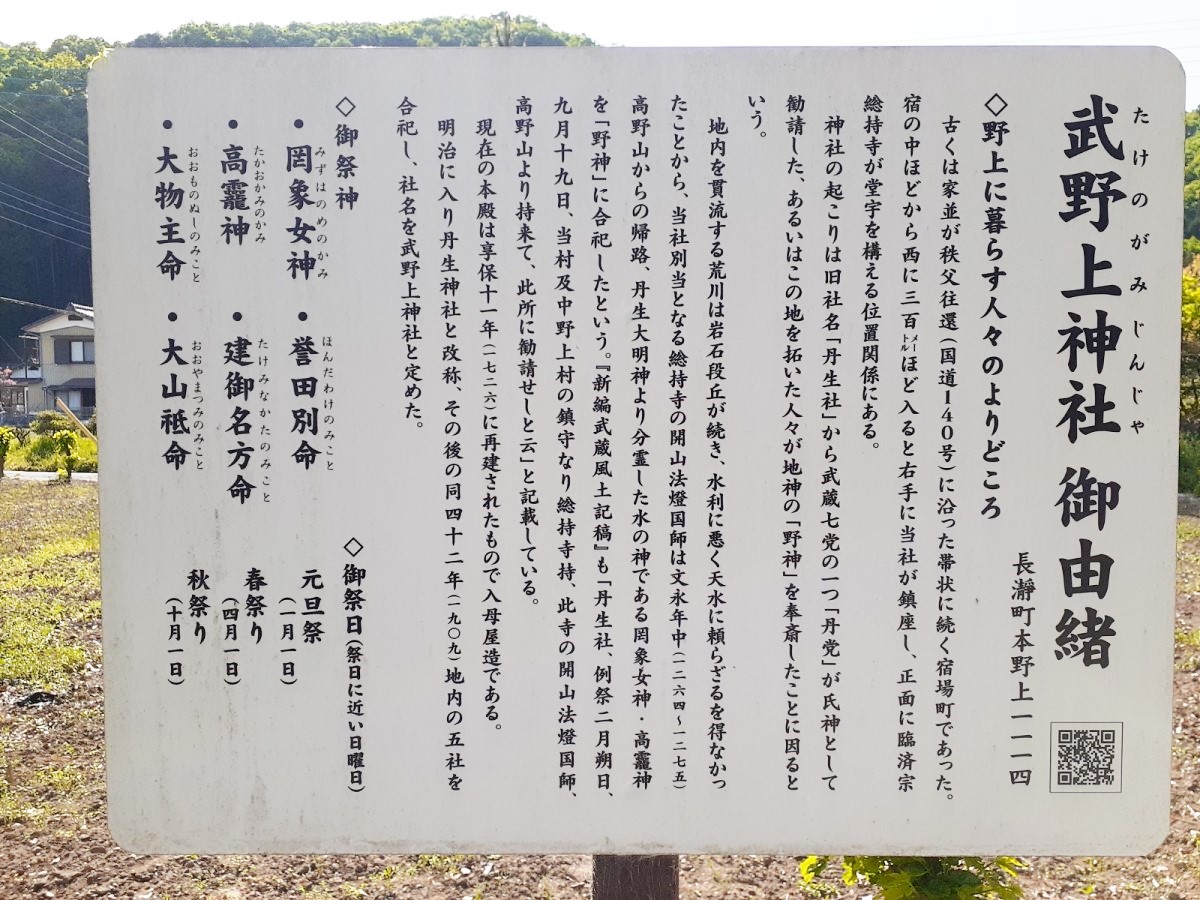 武野上神社 御由緒
たけのがみじんじゃ
長瀞町本野上一一一四
◇野上に暮らす人々のよりどころ
古くは家並が秩父往還(国道140号)に沿った帯状に続く宿場町であった。
宿の中ほどから西に三百メートルほど入ると右手に当社が鎮座し、正面に臨済宗
総持寺が堂宇を構える位置関係にある。
神社の起こりは旧社名「丹生社」から武蔵七党の一つ「丹党」が氏神として
勧請した、あるいはこの地を拓いた人々が地神の「野神」を奉斎したことに因ると
いう。
地内を貫流する荒川は岩石段丘が続き、水利に悪く天水に頼らざるを得なかっ
たことから、当社別当となる総持寺の開山法燈国師は文永年中(一二六四~一二七五)
高野山からの帰路、丹生大明神より分霊した水の神である罔象女神・高龗神
を「野神」に合祀したという。『新編武蔵風土記稿』も「丹生社、例祭二月朔日、
九月十九日、当村及中野上村の鎮守なり総持寺持、此寺の開山法燈国師、
高野山より持来て、此所に勧請せしと云」と記載している。
現在の本殿は享保十一年(一七二六)に再建されたもので入母屋造である。
明治に入り丹生神社と改称、その後の同四十二年(一九〇九)地内の五社を
合祀し、社名を武野上神社と定めた。
◇御祭神
•罔象女神
みずはのめのかみ
•誉田別命
ほんだわけのみこと
•高龗神
たかおかみのかみ
•建御名方命
たけみなかたのみこと
•大物主命
おおものぬしのみこと
•大山祗命
おおやまつみのみこと
◇御祭日(祭日に近い日曜日)
元旦祭
(一月一日)
春祭り
(四月一日)
秋祭り
(十月一日)